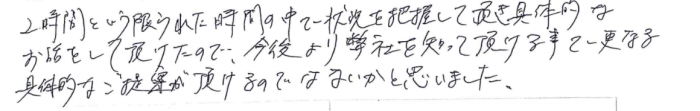 2時間という限られた時間の中で状況を把握して頂き具体的な
お話をして頂けたので、今後より弊社を知って頂ける事で更なる
具体的なご提案が頂けるのではないかと思いました。